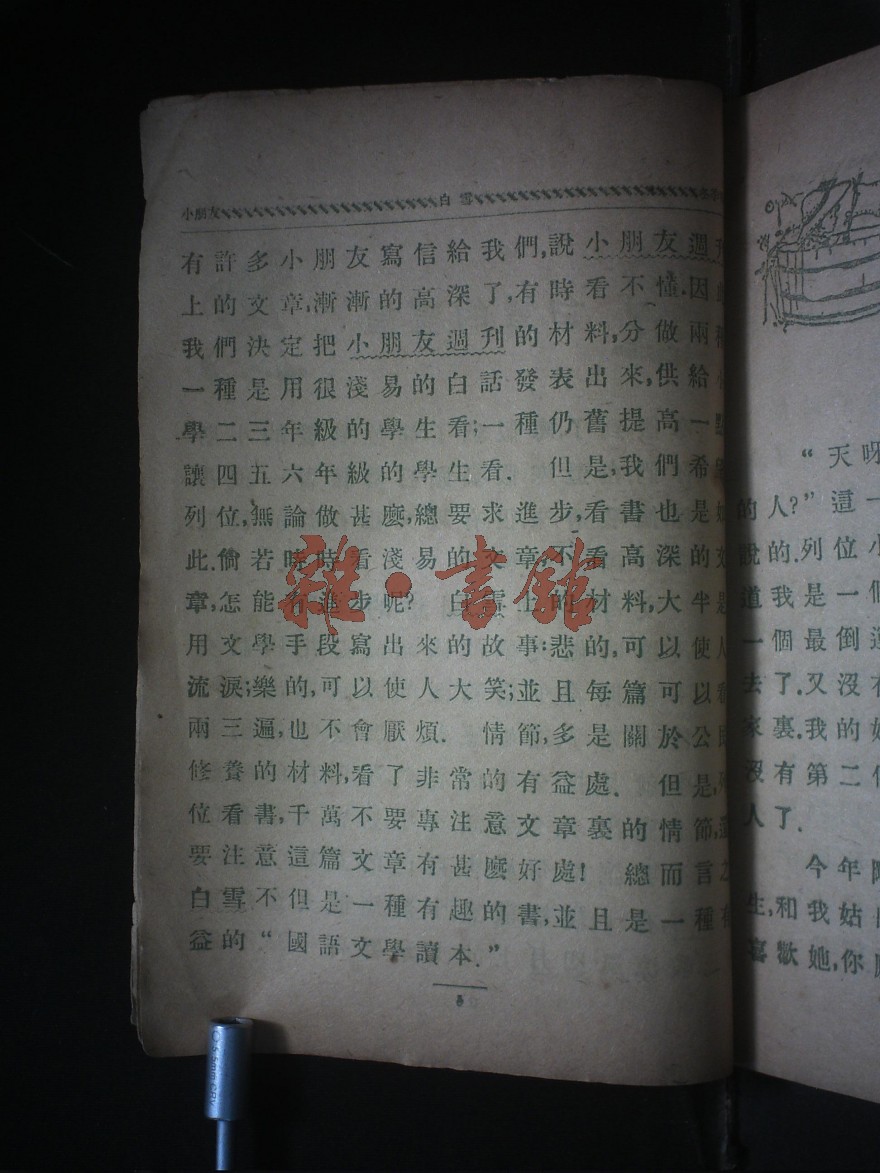 小朋友 白雪
有許多小朋友寫信給我們,說小朋友週刊
上的文章,漸漸的高深了,有時看不懂.因此
我們決定把小朋友週刊的材料,分做兩種
一種是用很淺易的白話發表出來,供給小
學二三年級的學生看;一種仍舊提高一點
讓四五六年級的學生看. 但是,我們希望
列位,無論做甚麼,總要求進步,看書也是如
此.倘若時時看淺易的文章,不看高深的文
章,怎能有進步呢? 白雪上的材料,大半是
用文學手段寫出來的故事:悲的,可以使人
流淚;樂的,可以使人大笑;並且每篇可以看
兩三遍,也不會厭煩. 情節,多是關於公民
修養的材料,看了非常的有益處. 但是,列
位看書,千萬不要專注意文章裏的情節,還
要注意這篇文章有甚麼好處! 總而言之
白雪不但是一種有趣的書,並且是一種有
益的“國語文學讀本.”
雜·書館
“天呀
的人?”這一
說的.列位小
道我是一個
一個最倒運
去了.又沒有
家裏.我的姑
沒有第二個
人了.
今年
生,和我姑
喜歡她,你
5.5mm CRV